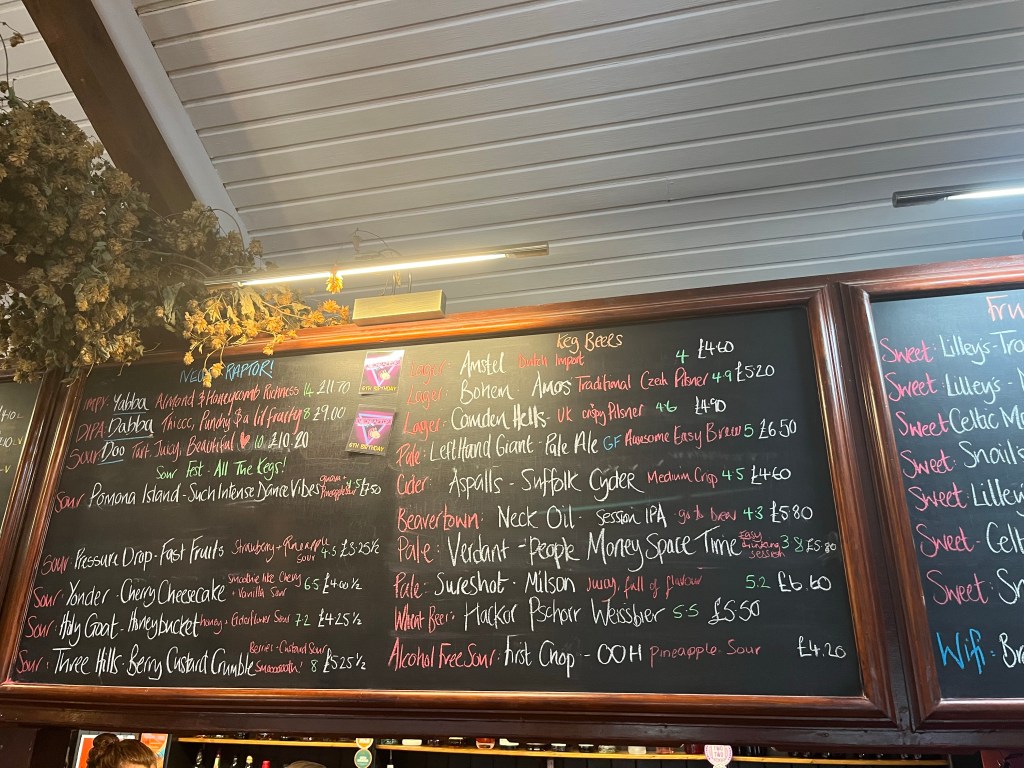 NEON RAPTOR!
IMPY: Yabba Almond & Honeycomb Richness 14 £11.70
DIPA: Dabba Thiccc, Punchy & a lil Fruity 8 £9.00
Sour Doo Tart, Juicy, Beautiful £10.20
Sour Fest - All The Kegs!
Sour Pomona Island - Such Intense Dance Vibes Guava Pineapple Sour
Sour Pressure Drop - Fast Fruits Strawberry + Pineapple Sour 4.5 £3.25 ½
Sour: Yonder - Cherry Cheesecake Smoothie like Cherry + Vanilla Sour 6.5 £4.60 ½
Sour: Holy Goat - Honeybucket Honey + Elderflower Sour 7.2 £4.25 ½
Sour: Three Hills - Berry Custard Crumble Berries - Custard Sour 8 £5.25 ½
8TH BIRTHDAY
8TH BIRTHDAY
Keg Beers
Lager: Amstel Dutch Import 4 £4.60
Lager: Bohem Amos Traditional Czech Pilsner 4.9 £5.20
Lager: Camden Hells - UK crispy Pilsner 4.6 £4.90
Pale: Left Hand Giant - Pale Ale GF Awesome Easy Brew 5 £6.50
Cider: Aspalls - Suffolk Cyder Medium Crisp 4.5 £4.60
Beavertown: Neck Oil - Session IPA go to brew 4.3 £5.80
Pale: Verdant - People Money Space Time Easy session 3.8 £5.80
Pale: Sureshot - Milson Juicy, full of flavour 5.2 £6.60
Wheat Beer: Hackor Pschorr Weissbier 5.5 £5.50
Alcohol Free Sour: First Chop - OOH Pineapple Sour £4.20
Fru
Sweet: Lilley's - Tro
Sweet: Lilley's -
Sweet Celtic Ma
Sweet: Snails
Sweet: Lilley
Sweet: Celt
Sweet: Sn
Wifi: Br